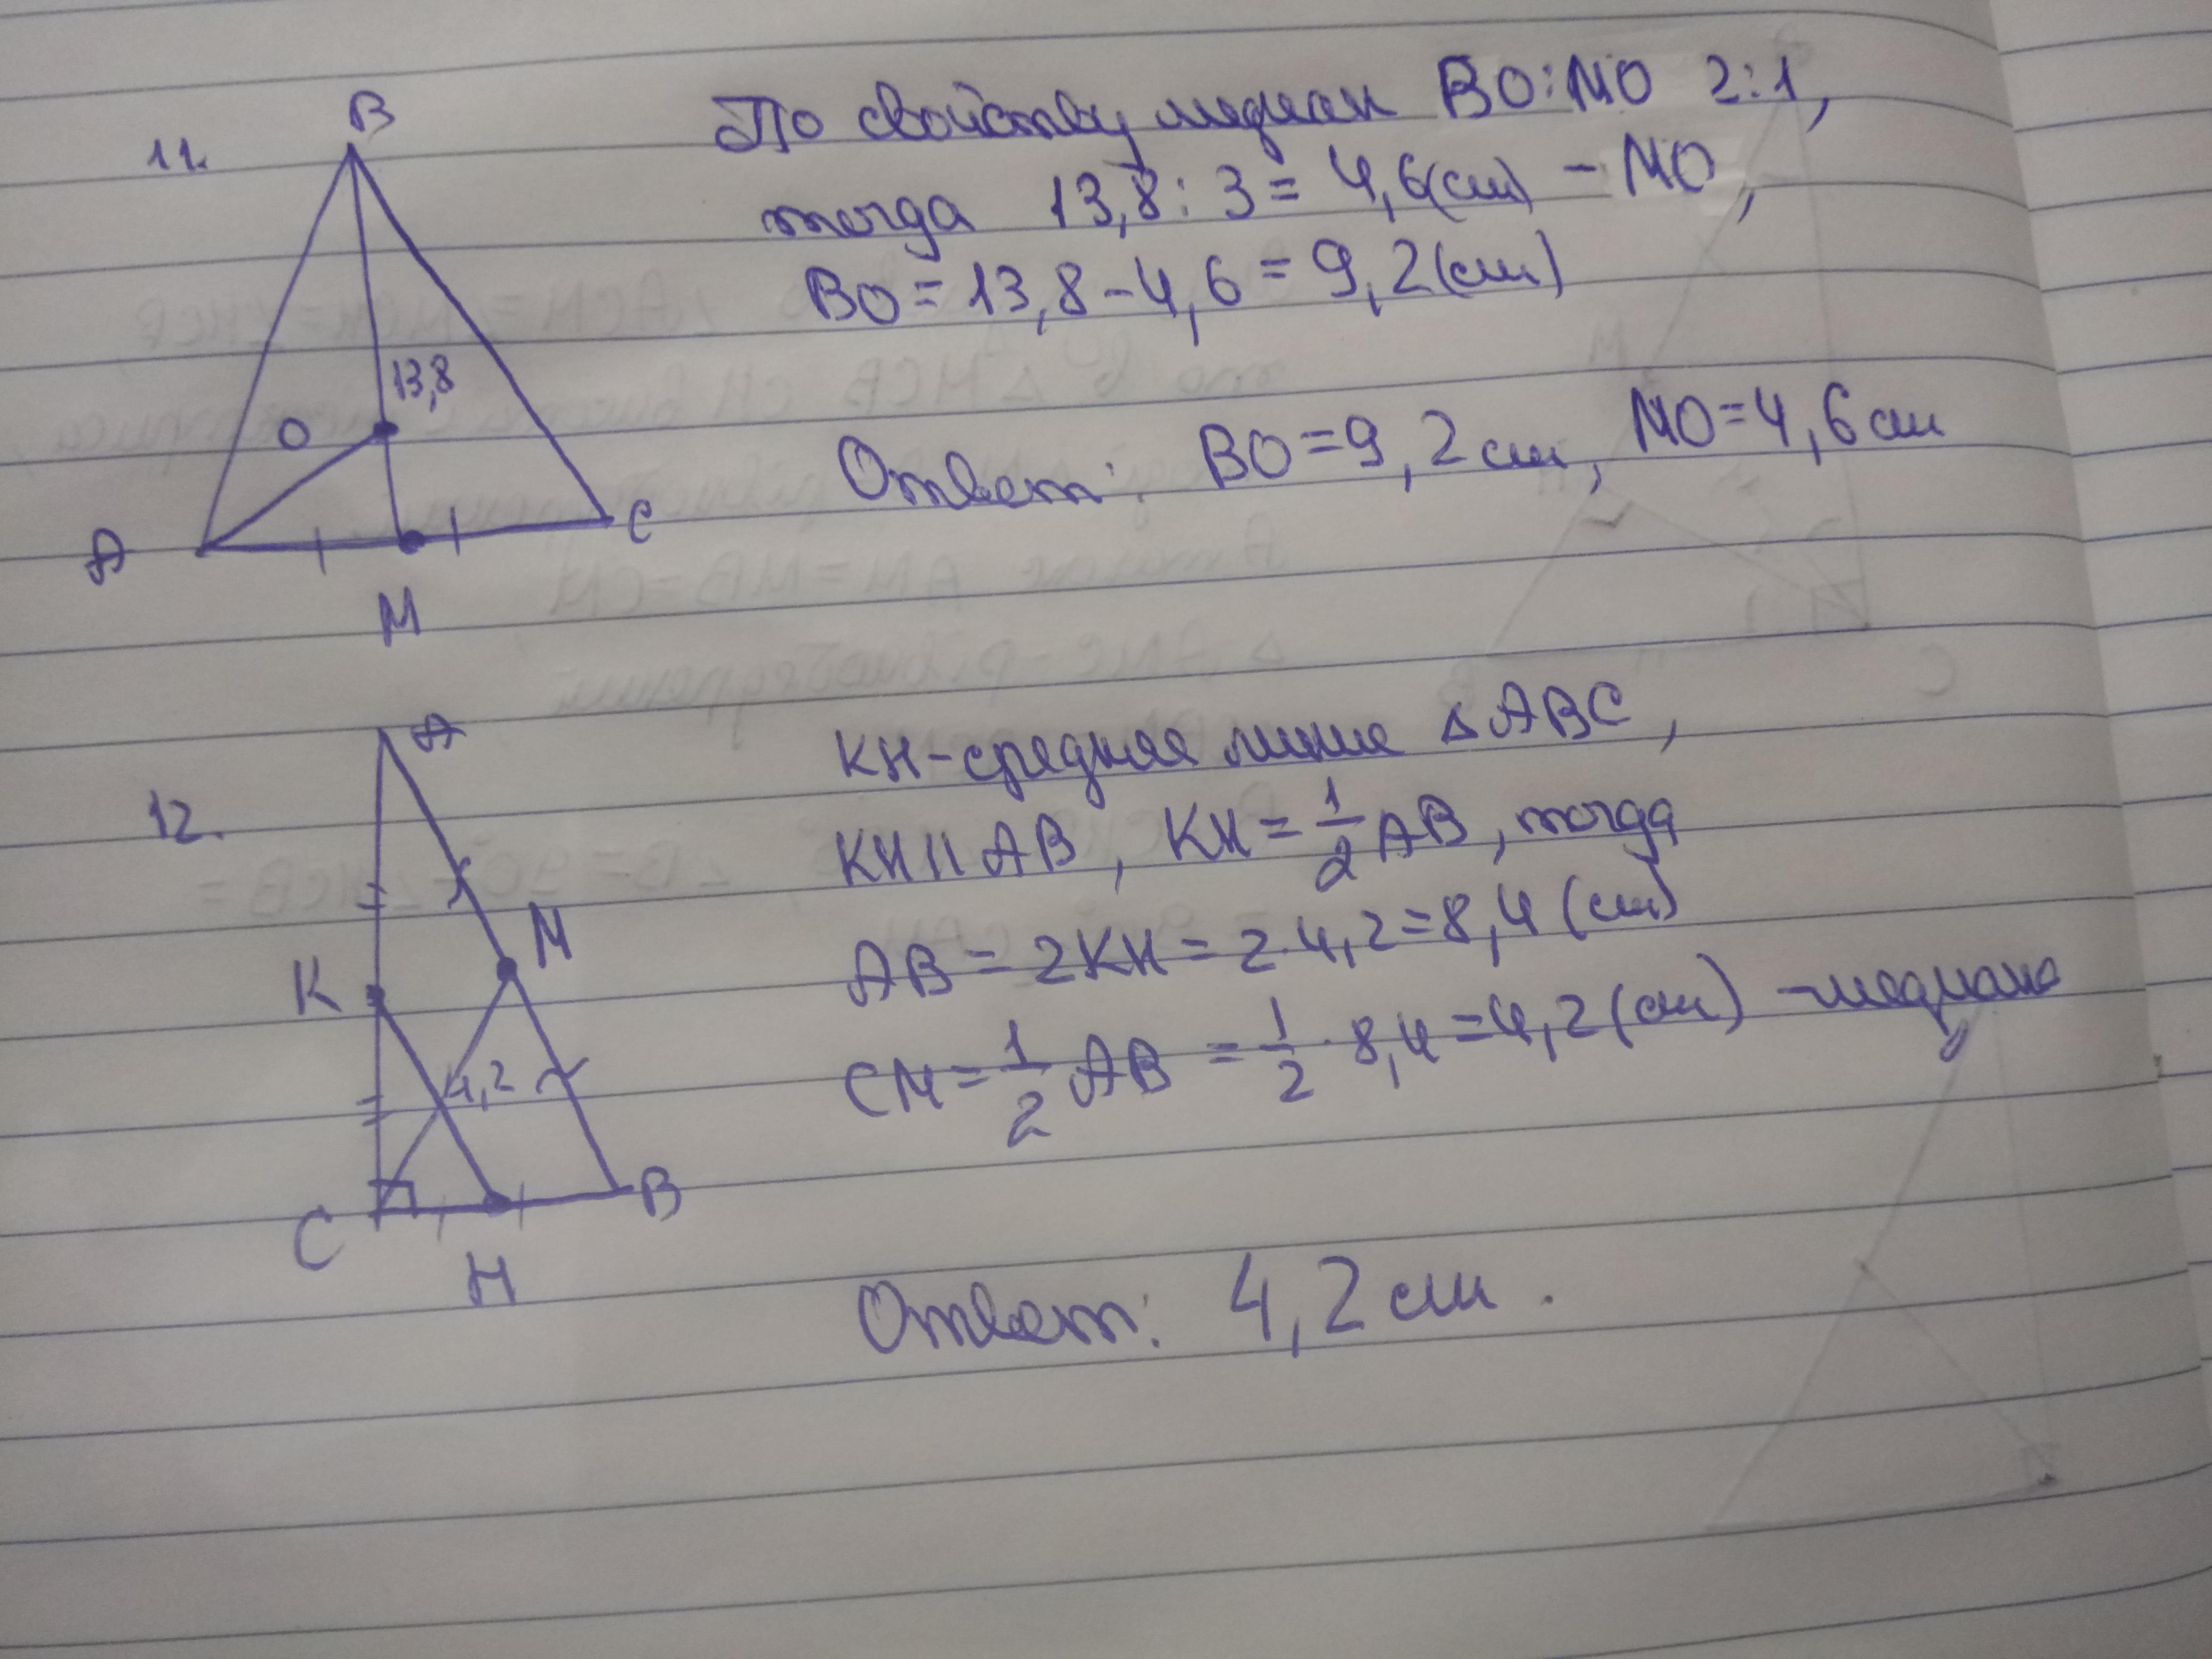 11.
B
O
13,8
A
M
C
По свойству медиан BO:MO 2:1,
тогда 13,8:3=4,6(см) - MO,
BO=13,8-4,6=9,2(см)
Ответ: BO=9,2см, MO=4,6см
12.
A
K
M
4,2
C
H
B
KH-средняя линия △ABC,
KH||AB, KH=1/2AB, тогда
AB=2KH=2·4,2=8,4(см)
CM=1/2AB=1/2·8,4=4,2(см) -медиана
Ответ: 4,2см.